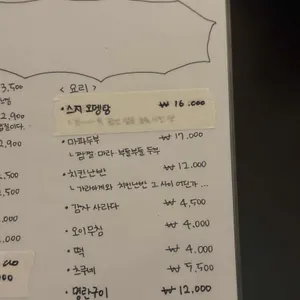 3,500
2,900
2,900
< 요리 >
스지 오뎅탕 ₩ 16,000
· 마파두부 ₩ 17,000
ㄴ 짬짤 마라 부들부들 두부
· 치킨난반 ₩ 12,000
ㄴ 가라아게와 치킨난반 그 사이 어딘가...
· 감자 사라다 ₩ 4,500
· 오이무침 ₩ 4,000
· 떡 ₩ 4,000
· 츠쿠네 ₩ 5,500
· 명란구이 ₩ 12,000